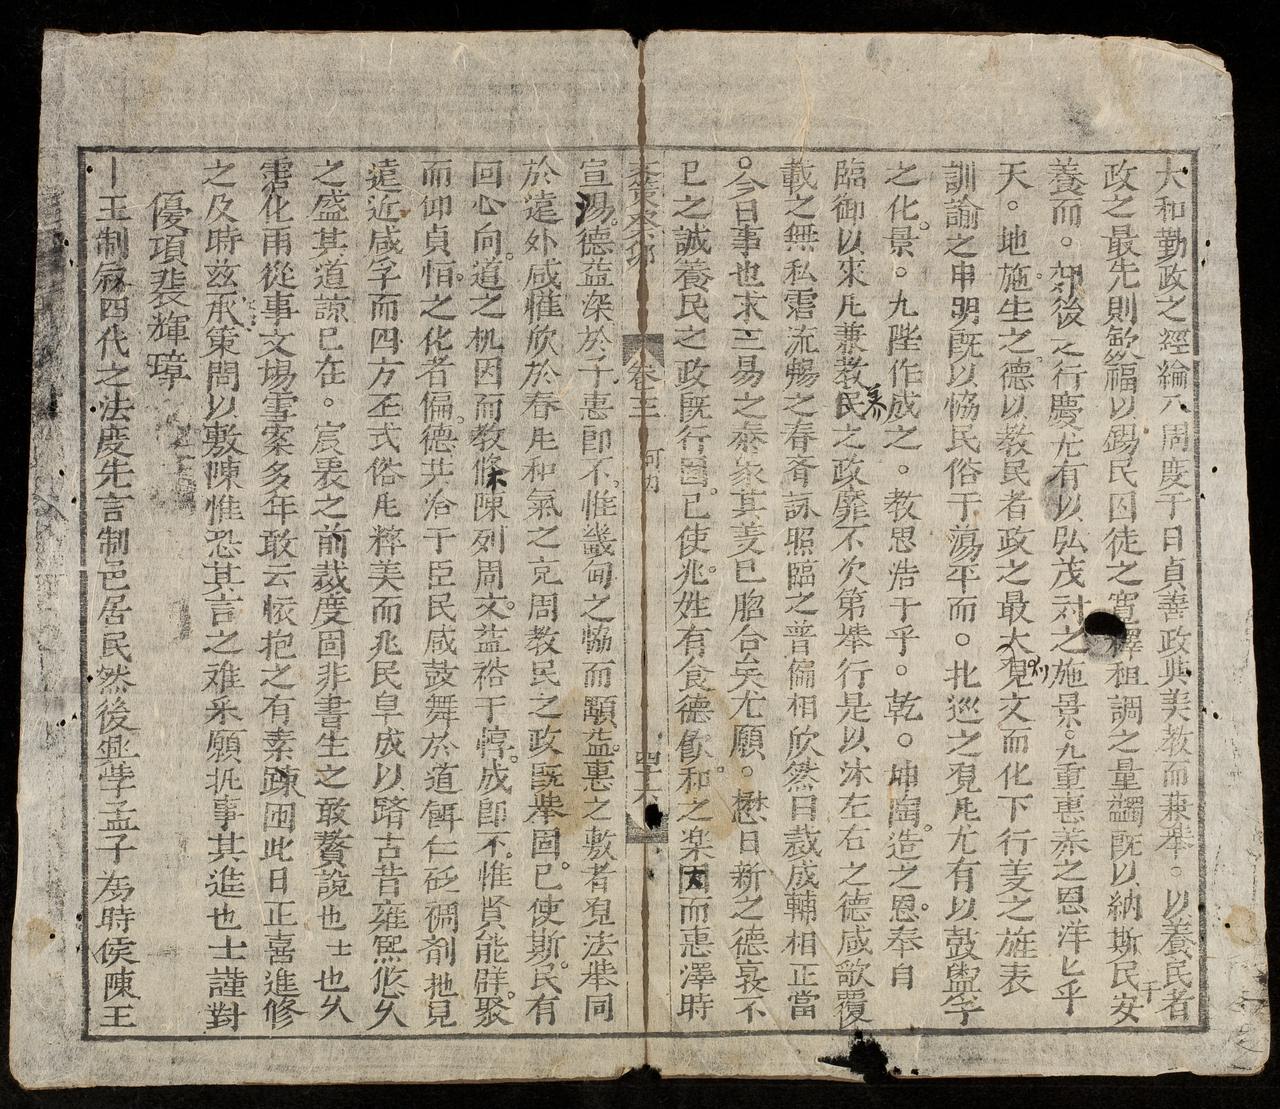 大和勤政之經綸八周度于日貞善政典美教而兼舉。以養民者
政之最先則歛福以錫民囚徒之寬釋租調之量蠲既以納斯民安
養而。却後之行慶尤有以弘茂对之施景。九重惠养之恩洋匕乎
天。地施。生之。德以教民者政之最大。观文而化下行姜之旌表
訓諭之申明既以恊民俗于蕩平而。北巡之覌尤有以鼓盥孚
之化。景。九陛作成之。教思浩于乎。乾。坤陶。造之。恩。奉自
臨御以來凡兼教養民之政靡不次第舉行是以沐左右之德咸歌覆
載之無私霑流暢之春肴詠照臨之普徧相欣然曰裁成輔相正當
。今日事也求之易之泰象其姜已脗合矣尤願。懋日新之德㝡不
已之誠養民之政既行固。已使兆。姓有食德飲和。之楽因而惠澤時
卷三
四十六
宣湯。德益深於于惠即不。惟畿甸之恊而顒益。惠之敷者覌法举同
於遠外咸懽欣於春凡和氣之克周教民之政既举固。已使斯。民有
回心向。道之机因而教條陳列周文。益裕于惇。成即不。惟賢能群。聚
而仰貞恒。之化者偏。德共洽于臣民咸鼓舞於道餌仁砭礪剤地見
遠近咸孚而四方丕式俗凡粹美而兆民阜成以躋古昔雍熙悠久
之盛其道諒已在。宸衷之前裁度固非書生之敢贅說也士也久
霑化雨從事文場雪案多年敢云懷抱之有素疎囿此日正喜進修
之及時兹承策問以敷陳惟恐其言之难采願抚事其進也士謹對
優項裴輝璋
一王制叙四代之法度先言制邑居民然後興学孟子為時侯陳王